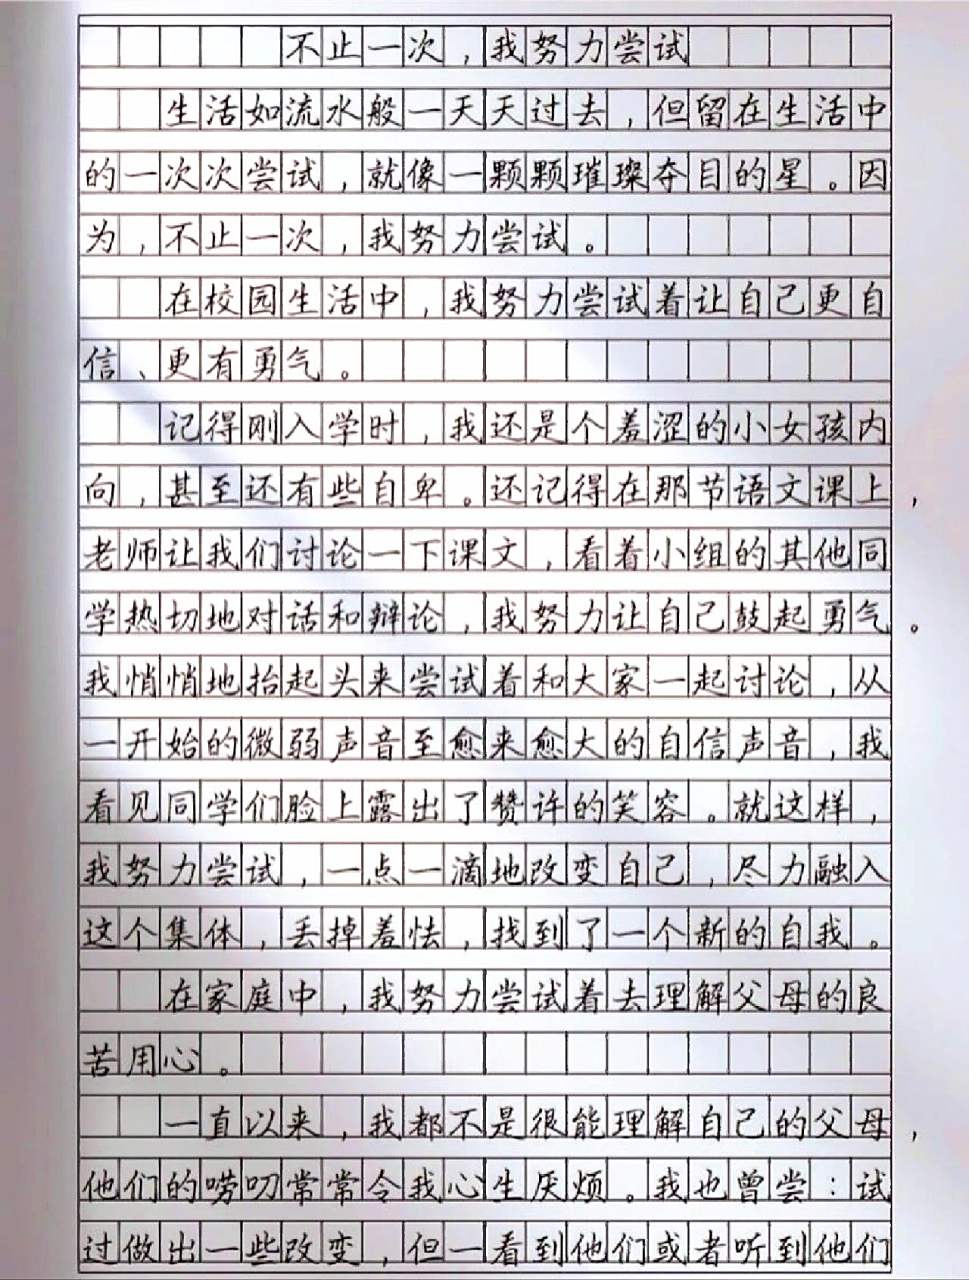 不止一次，我努力尝试
生活如流水般一天天过去，但留在生活中
的一次次尝试，就像一颗颗璀璨夺目的星。因
为，不止一次，我努力尝试。
在校园生活中，我努力尝试着让自己更自
信、更有勇气。
记得刚入学时，我还是个羞涩的小女孩内
向，甚至还有些自卑。还记得在那节语文课上，
老师让我们讨论一下课文，看着小组的其他同
学热切地对话和辩论，我努力让自己鼓起勇气。
我悄悄地抬起头来尝试着和大家一起讨论，从
一开始的微弱声音至愈来愈大的自信声音，我
看见同学们脸上露出了赞许的笑容。就这样，
我努力尝试，一点一滴地改变自己，尽力融入
这个集体，丢掉羞怯，找到了一个新的自我。
在家庭中，我努力尝试着去理解父母的良
苦用心。
一直以来，我都不是很能理解自己的父母，
他们的唠叨常常令我心生厌烦。我也曾尝：试
过做出一些改变，但一看到他们或者听到他们